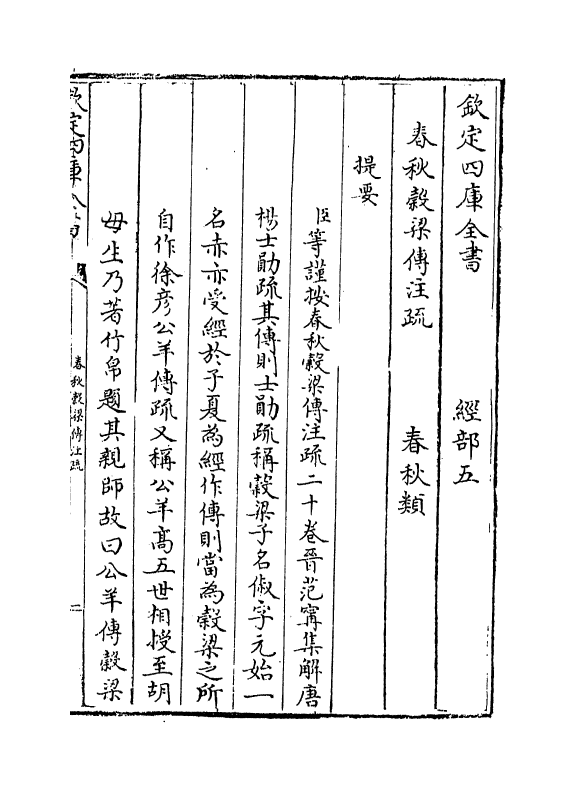 欽定四庫全書　經部五
春秋穀梁傳注疏　春秋類
提要
臣等謹按春秋穀梁傳注疏二十卷晉范甯集解唐
楊士勛疏其傳則士勛疏稱穀梁子名俶字元始一
名赤亦受經於子夏為經作傳則當為穀梁之所
自作徐彦公羊傳疏又稱公羊高五世相授至胡
毋生乃著竹帛題其親師故曰公羊傳穀梁
欽定四庫全書
春秋穀梁傳注疏